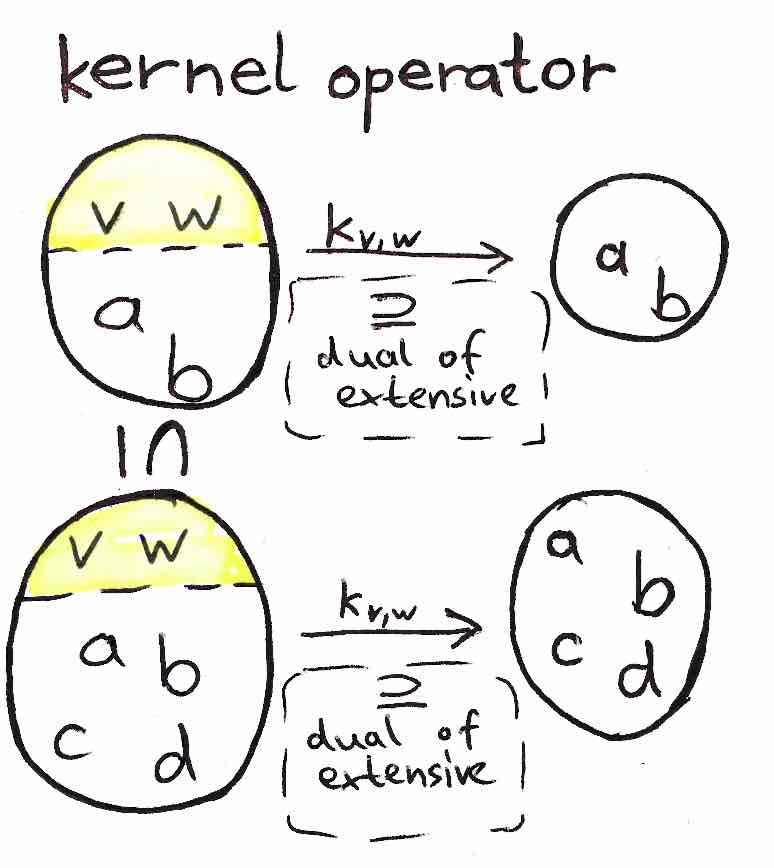 kernel operator
v w
a
b
k v,w
⊇
dual of
extensive
a
b
I∩
v w
a b
c d
k v,w
⊇
dual of
extensive
a
b
c
d